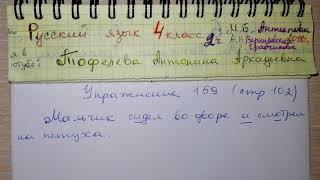 Русский язык 4 класс
2ч
М.Б. Антипова
2018г.
Тофелева Антонина Аркадьевна
Упражнение 159 (стр 102)
Мальчик сидел во дворе и смотрел
на петуха.